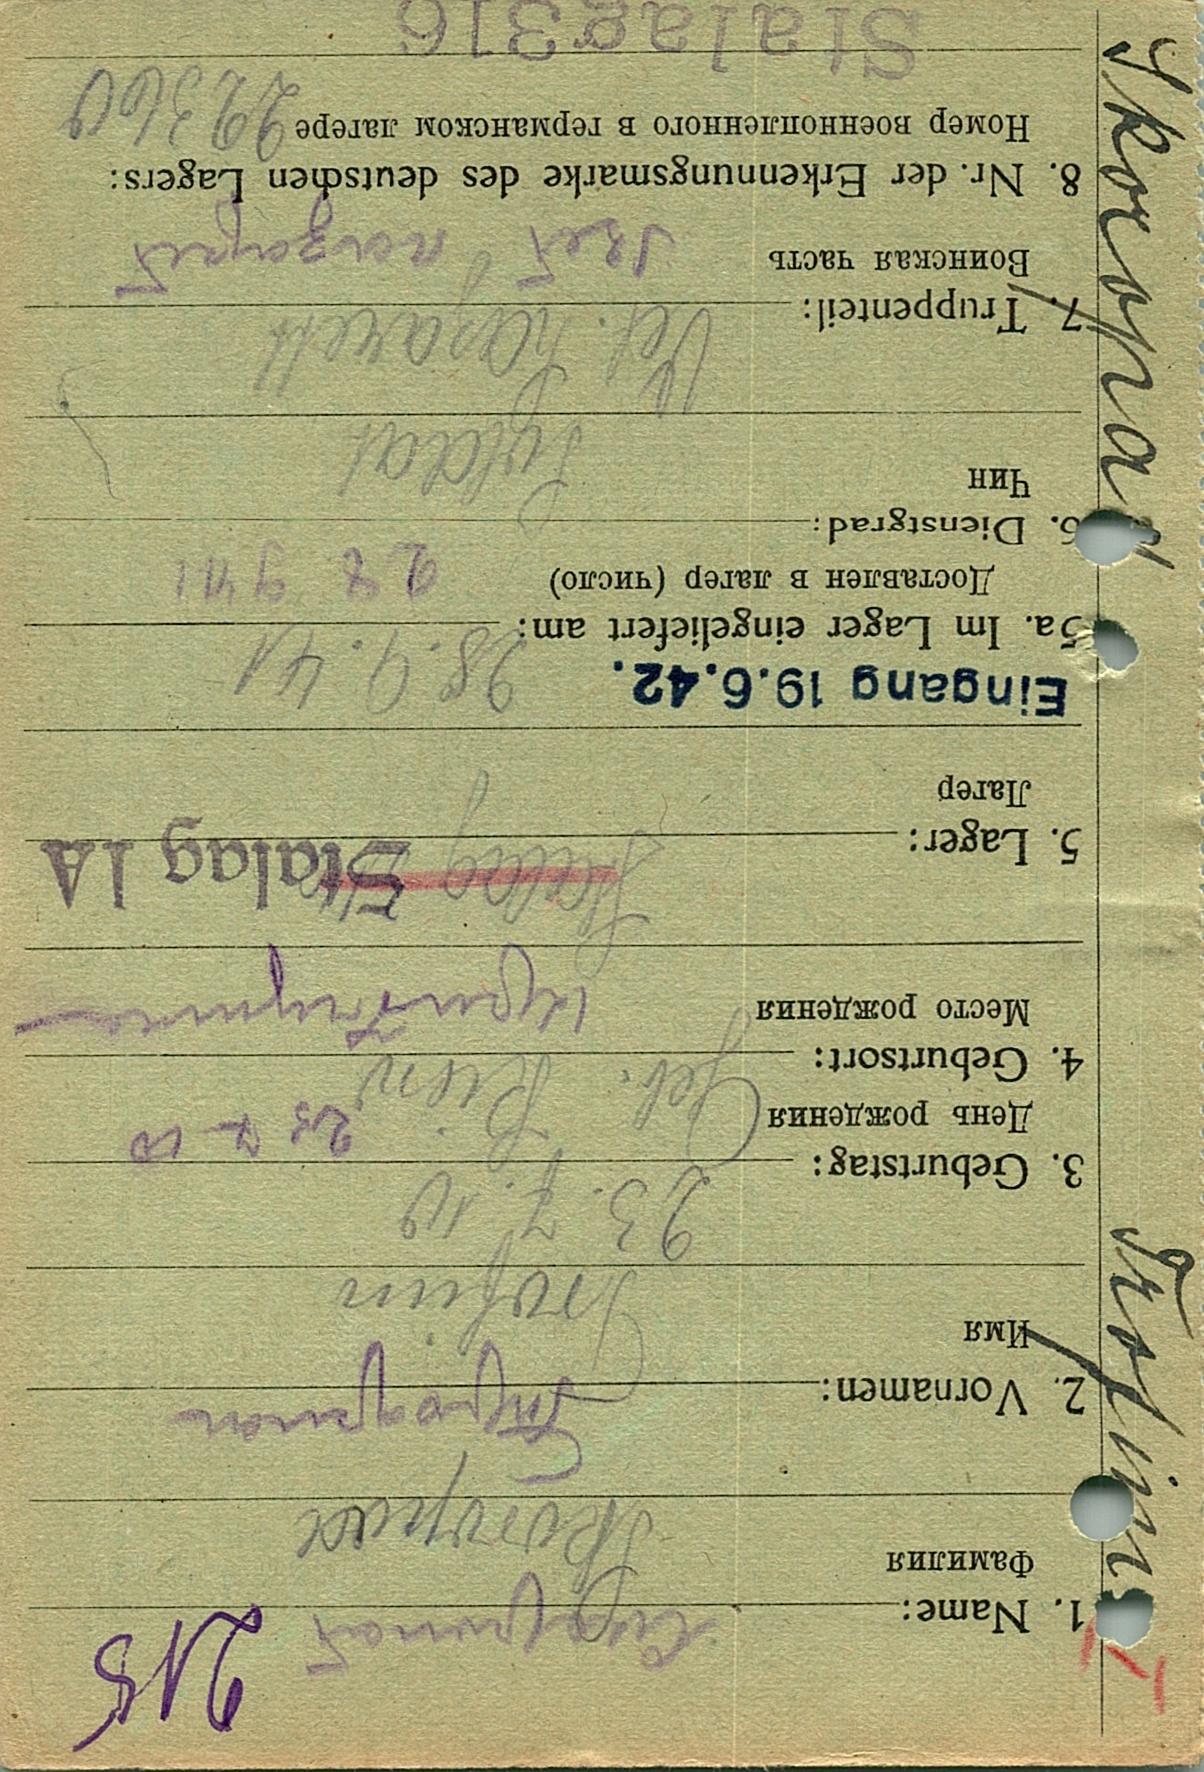 215
1. Name:
Фамилия
2. Vornamen:
Trofim
Имя
3. Geburtstag: 23. 7. 10
День рождения 23 7 10
4. Geburtsort: Geb. Kiew
Место рождения
5. Lager: Stalag Stalag IA
Лагерь
Eingang 19.6.42. 28.9.41
5a. Im Lager eingeliefert am:
Доставлен в лагер (число) 28 9 41
6. Dienstgrad: Soldat
Чин
7. Truppenteil: Vet. Lazarett
Воинская часть
8. Nr. der Erkennungsmarke des deutschen Lagers:
Номер военнопленного в германском лагере 22360
Stalag316
Skoropad Trofim